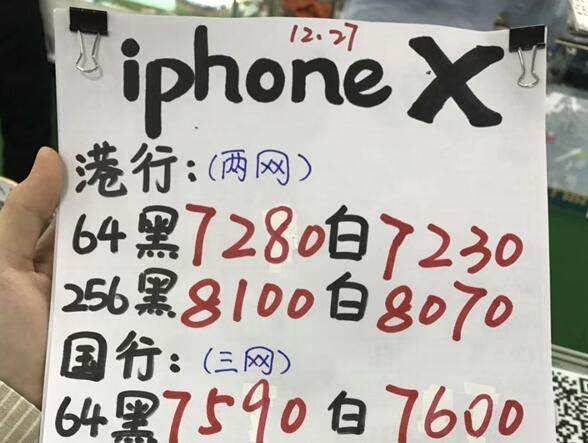 12.27
iphone X
港行:(两网)
64黑7280白7230
256黑8100白8070
国行:(三网)
64黑7590白7600